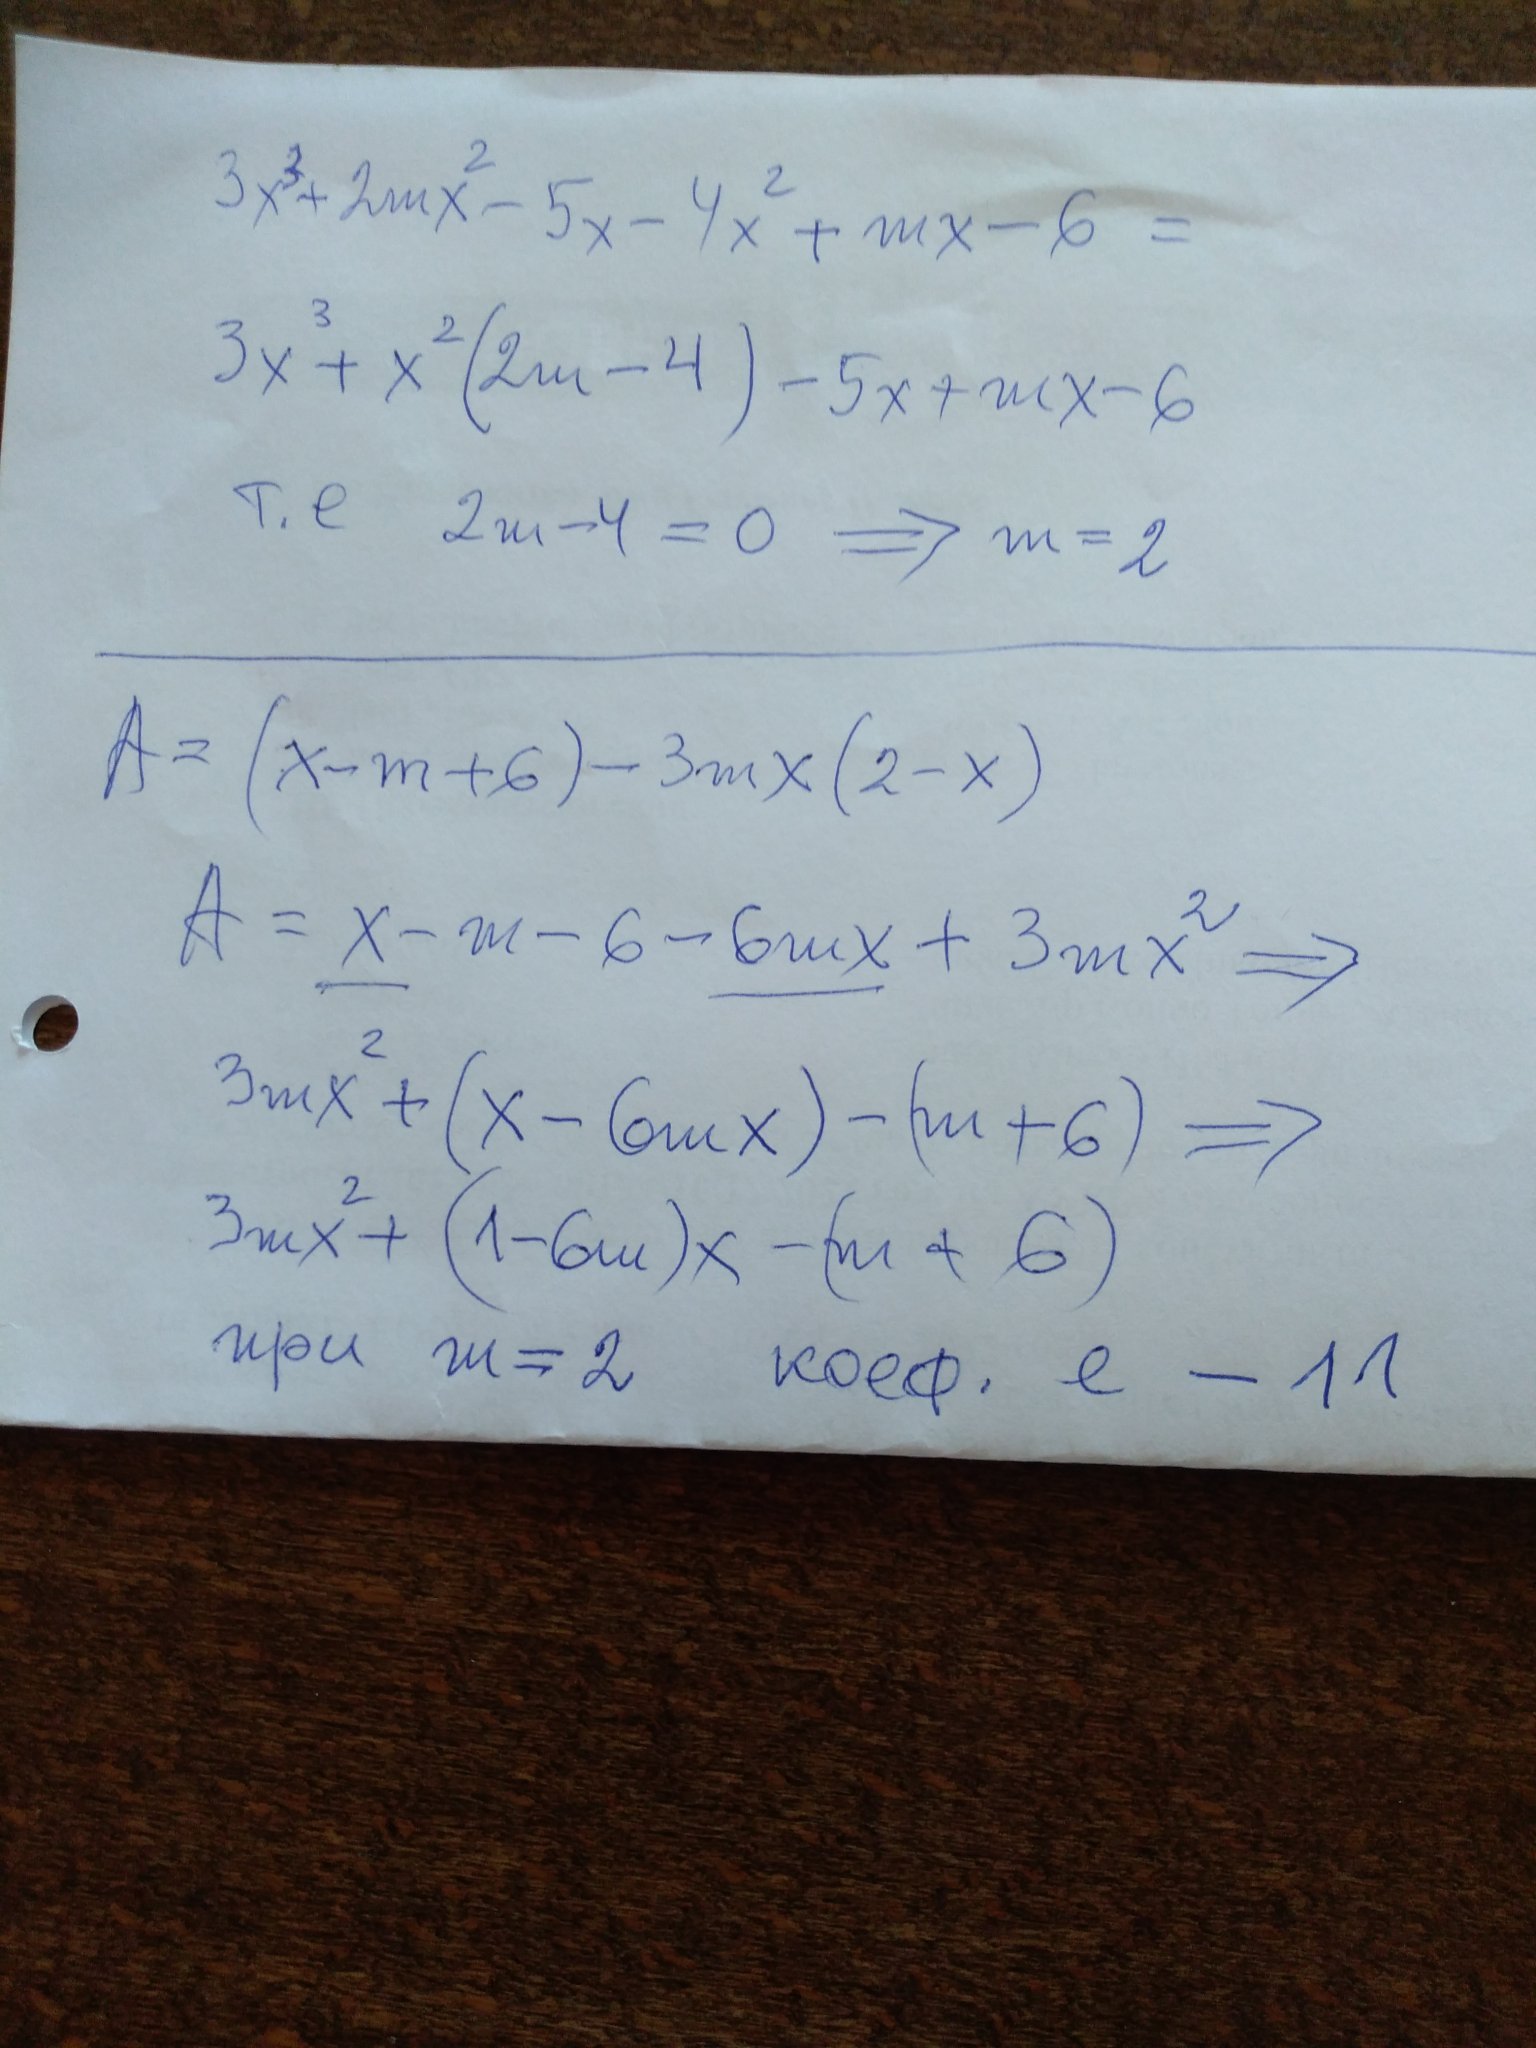 3x³+2mx²-5x-4x²+mx-6=
3x³+x²(2m-4)-5x+mx-6
т.е 2m-4=0 ⇒ m=2
A=(x-m+6)-3mx(2-x)
A=x-m-6-6mx+3mx² ⇒
3mx²+(x-6mx)-(m+6) ⇒
3mx²+(1-6m)x-(m+6)
при m=2 коеф. е -11